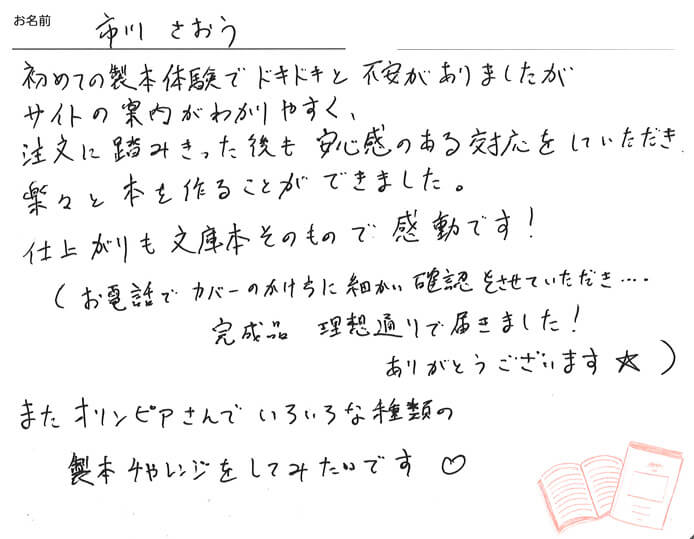 お名前 市川 さおう
初めての製本体験でドキドキと不安がありましたが
サイトの案内がわかりやすく、
注文に踏みきった後も安心感のある対応をしていただき
楽々と本を作ることができました。
仕上がりも文庫本そのもので感動です!
(お電話でカバーのかけ方に細かい確認をさせていただき....
完成品 理想通りで届きました!
ありがとうございます☆)
またオリンピアさんでいろいろな種類の
製本チャレンジをしてみたいです♡